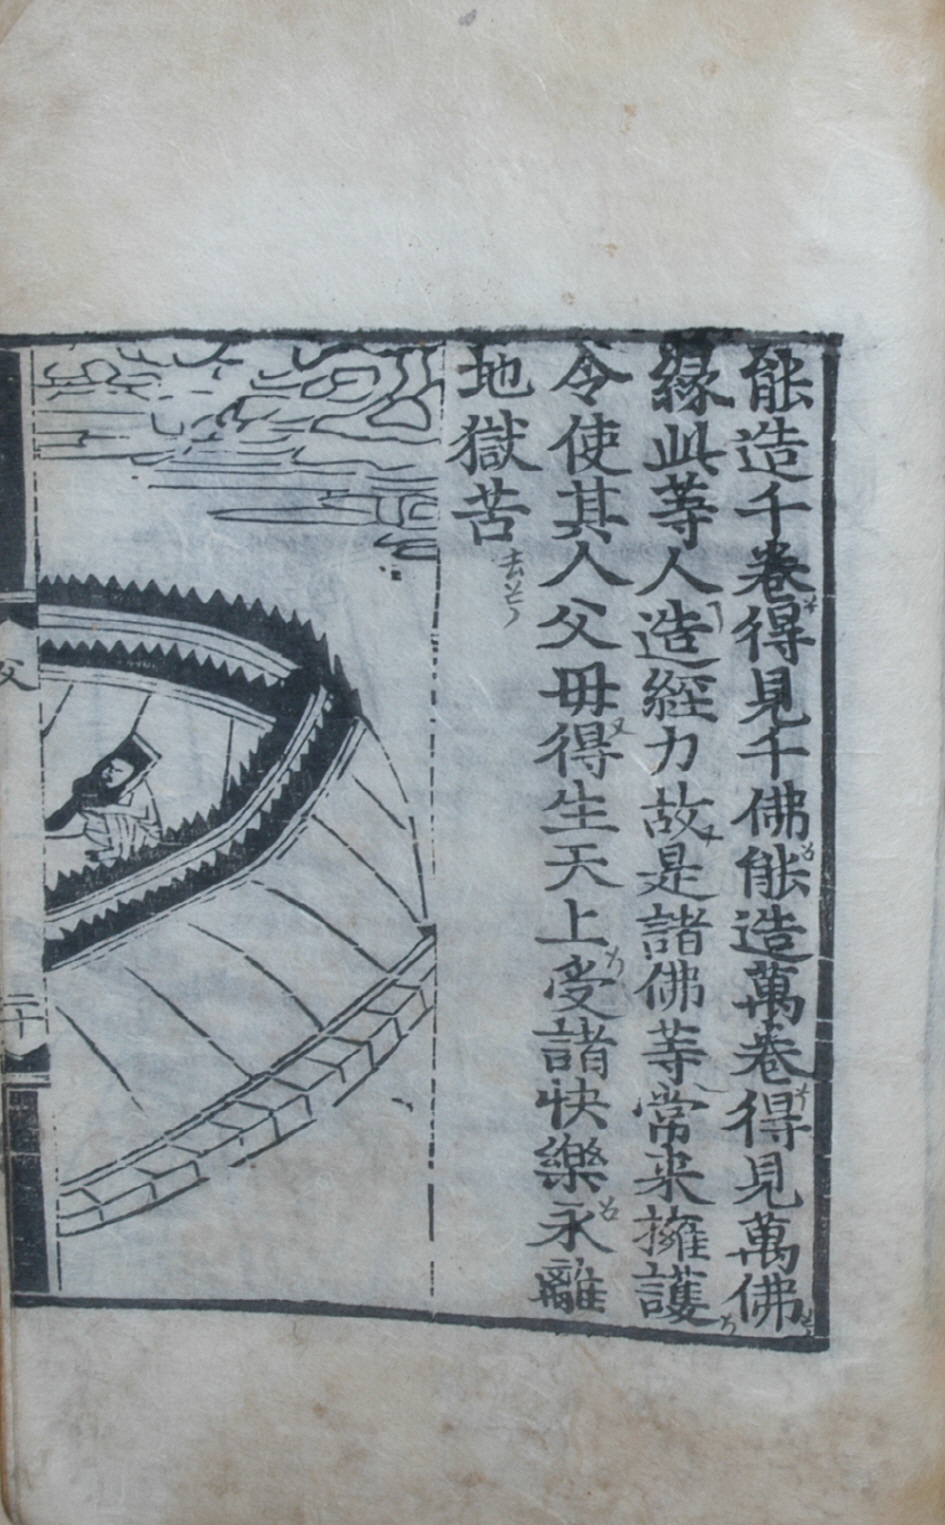 能造千卷得見千佛能造萬卷得見萬佛
緣此等人造經力故是諸佛等常来擁護
令使其人父母得生天上受諸快樂永離
地獄苦
父
二十